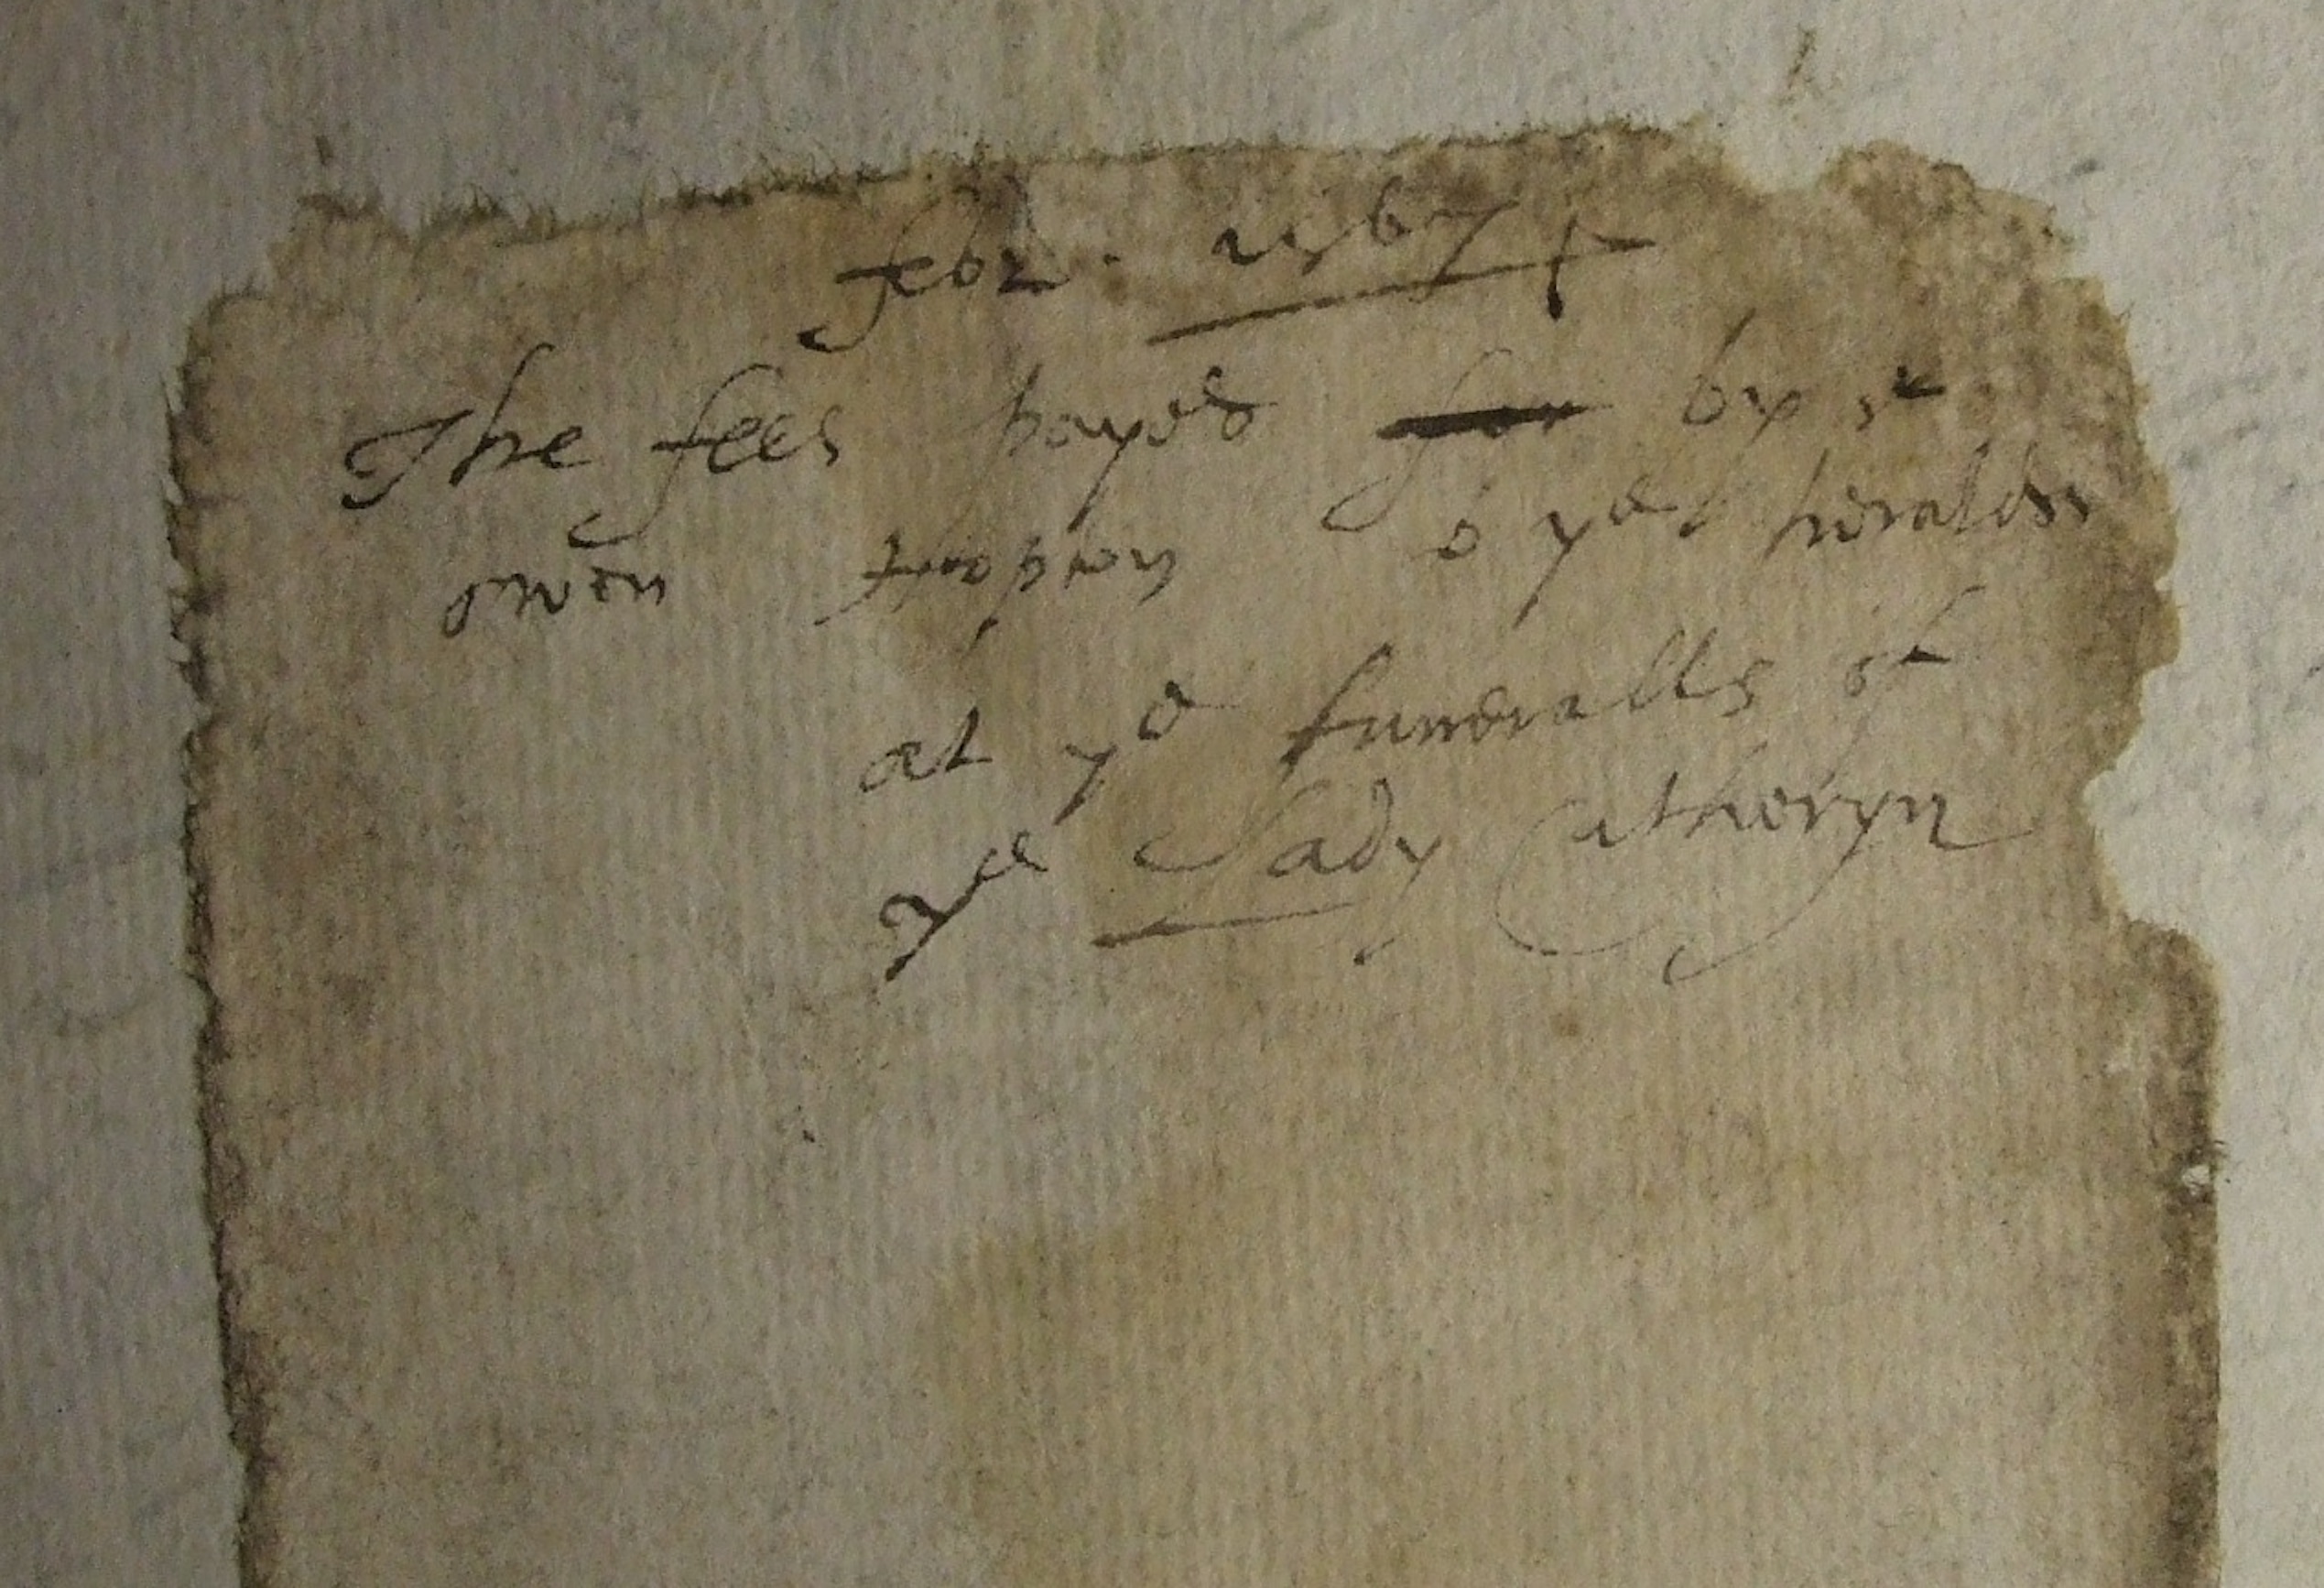 febr. 1567
The fees payed for by sr
owen hopton to ye heraldes
at ye funeralls of
ye Lady Catheryn